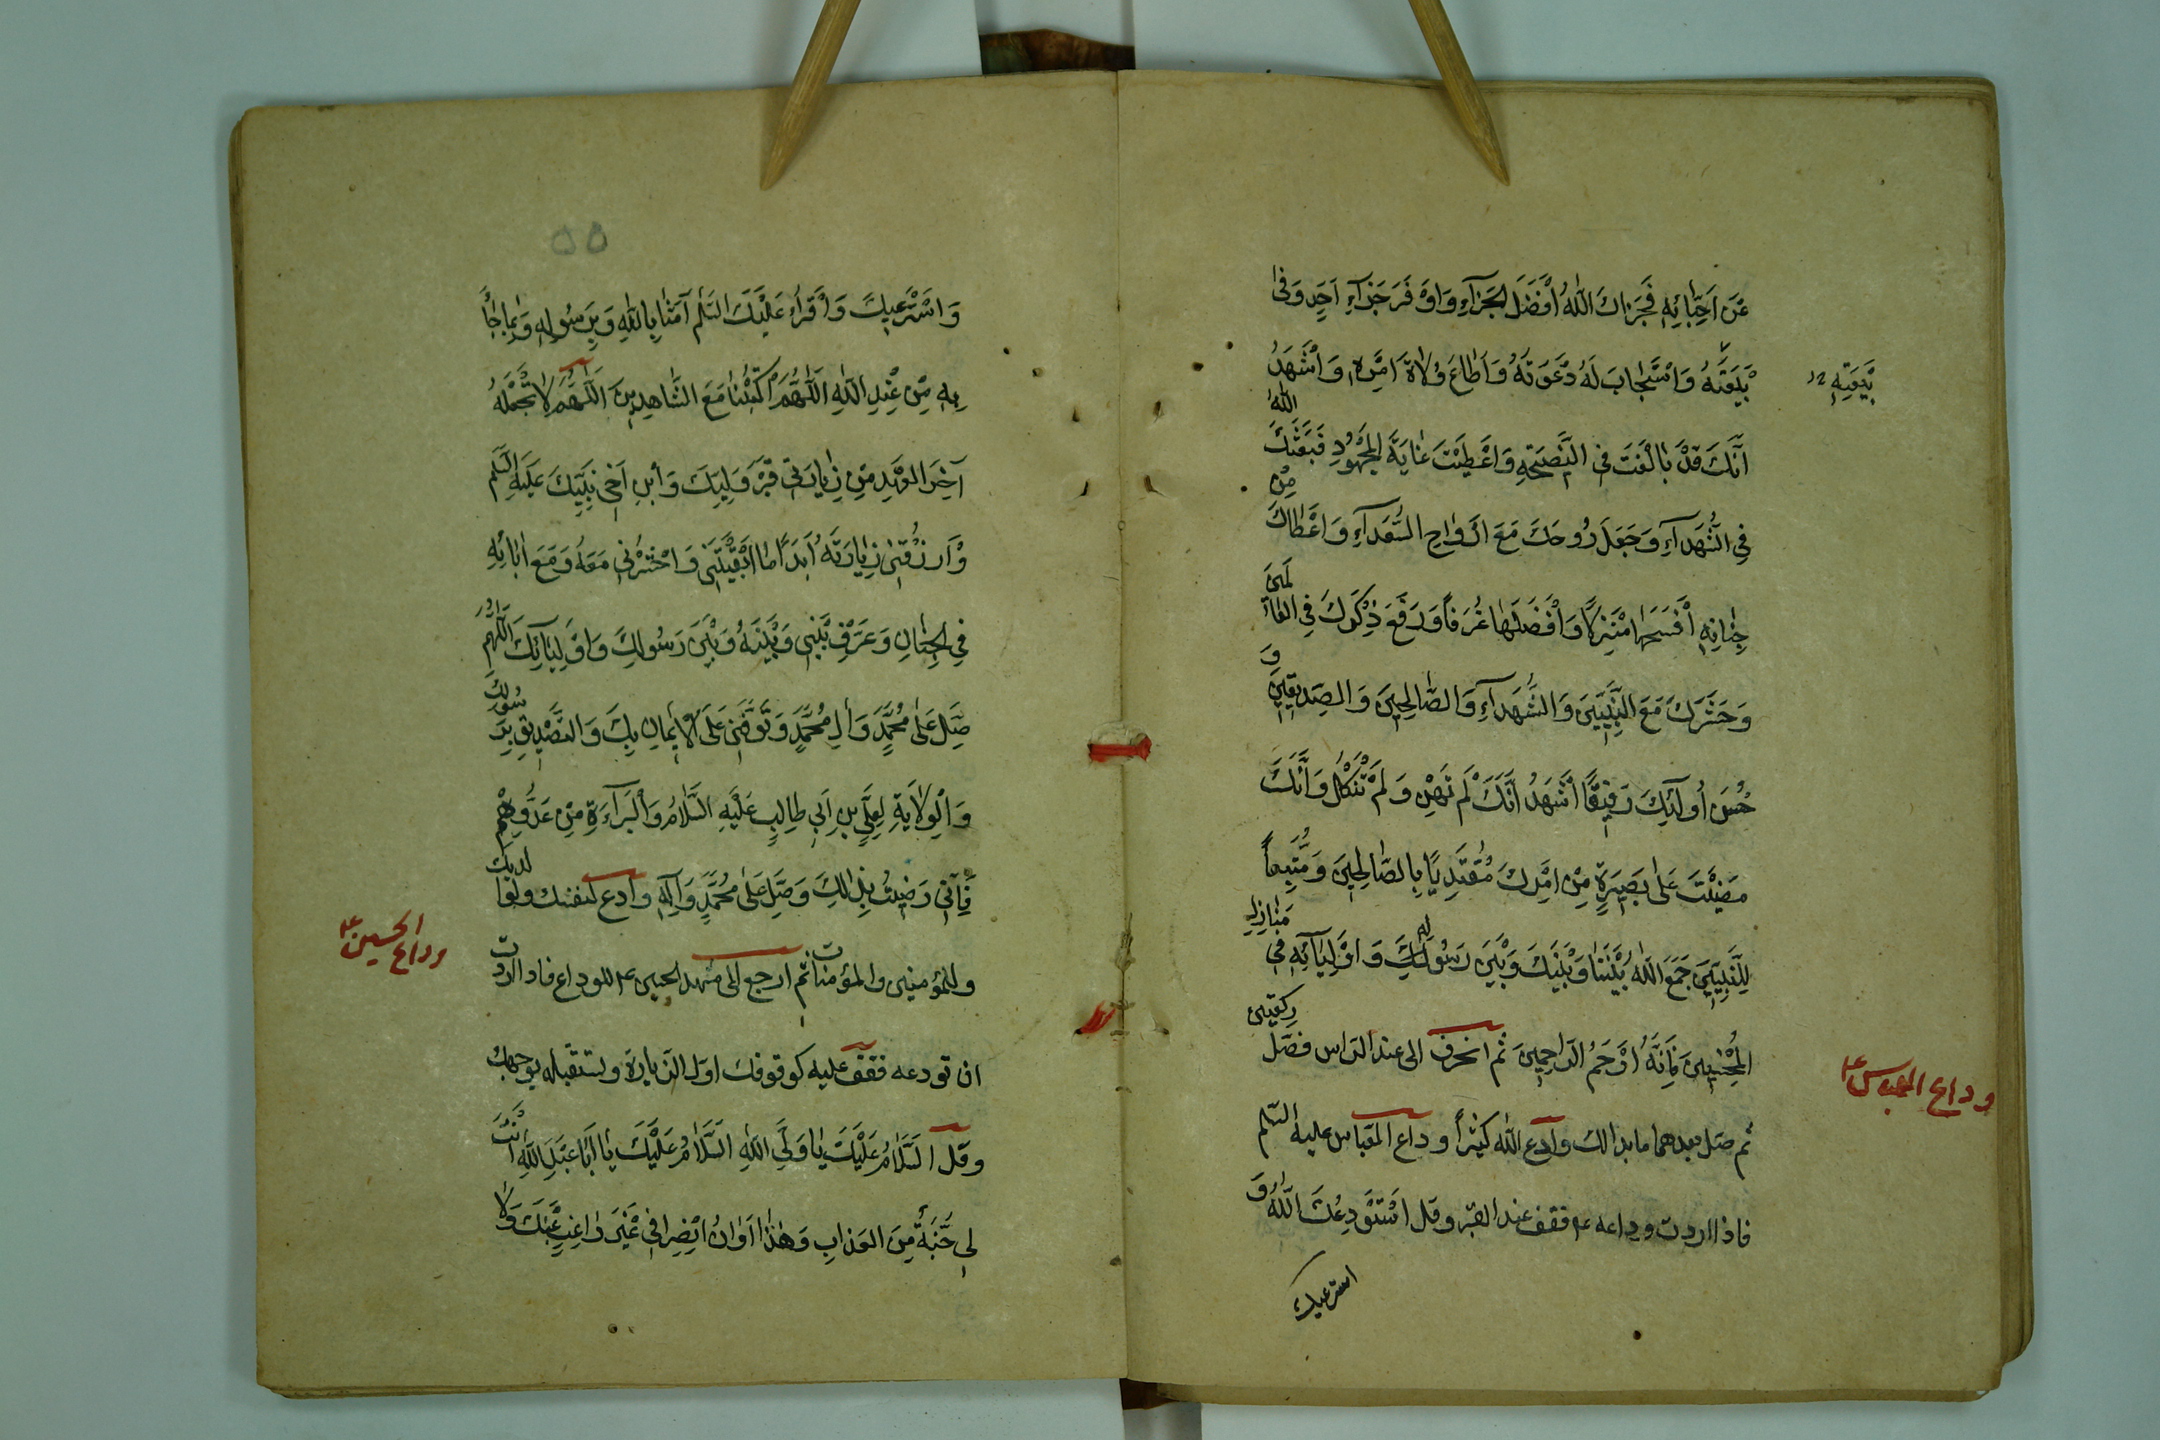 عَنْ اَحِبَّائِهِ فَجَزَاكَ اللّٰهُ اَفْضَلَ الْجَزَآءِ وَاَوْفَرَ جَزَآءِ اَحَدٍ وَفٰى
بَيْعَتَهُ وَاسْتَجَابَ لَهُ دَعْوَتَهُ وَاَطَاعَ وُلَاةَ اَمْرِهِ وَاَشْهَدُ
بَيْعَتِهِ
اَنَّكَ قَدْ بَالَغْتَ فِى النَّصِيحَةِ وَاَعْطَيْتَ غَايَةَ الْمَجْهُودِ فَبَعَثَكَ اللّٰهُ
فِى الشُّهَدَآءِ وَجَعَلَ رُوحَكَ مَعَ اَرْوَاحِ السُّعَدَآءِ وَاَعْطَاكَ مِنْ
جِنَانِهِ اَفْسَحَهَا مَنْزِلًا وَاَفْضَلَهَا غُرَفًا وَرَفَعَ ذِكْرَكَ فِى الْعَالَمِينَ
وَحَشَرَكَ مَعَ النَّبِيِّينَ وَالشُّهَدَآءِ وَالصَّالِحِينَ وَالصِّدِّيقِينَ وَ
حَسُنَ اُولٰئِكَ رَفِيقًا اَشْهَدُ اَنَّكَ لَمْ تَهِنْ وَلَمْ تَنْكُلْ وَاَنَّكَ
مَضَيْتَ عَلٰى بَصِيرَةٍ مِنْ اَمْرِكَ مُقْتَدِيًا بِالصَّالِحِينَ وَمُتَّبِعًا
لِلنَّبِيِّينَ جَمَعَ اللّٰهُ بَيْنَنَا وَبَيْنَكَ وَبَيْنَ رَسُولِهِ وَاَوْلِيَآئِهِ فِى مَنَازِلِ
الْمُخْبِتِينَ فَاِنَّهُ اَرْحَمُ الرَّاحِمِينَ ثم انحرف الى عند الراس فصل ركعتين
ثم صل بعدهما ما بدالك وادع الله كثيرًا وداع العباس عليه السلم
وداع العباس ع
فاذا اردت وداعه ع فقف عند القبر وقل اَسْتَوْدِعُكَ اللّٰهَ وَ
استرعيك
٥٥
وَاَسْتَرْعِيكَ وَاَقْرَاُ عَلَيْكَ السَّلٰمَ آمَنَّا بِاللّٰهِ وَبِرَسُولِهِ وَبِمَا جَآءَ
بِهِ مِنْ عِنْدِ اللّٰهِ اَللّٰهُمَّ اكْتُبْنَا مَعَ الشَّاهِدِينَ اَللّٰهُمَّ لَا تَجْعَلْهُ
آخِرَ الْعَهْدِ مِنْ زِيَارَتِى قَبْرَ وَلِيِّكَ وَابْنِ اَخِى نَبِيِّكَ عَلَيْهِ السَّلٰم
وَارْزُقْنِى زِيَارَتَهُ اَبَدًا مَا اَبْقَيْتَنِى وَاحْشُرْنِى مَعَهُ وَمَعَ اٰبَائِهِ
فِى الْجِنَانِ وَعَرِّفْ بَيْنِى وَبَيْنَهُ وَبَيْنَ رَسُولِكَ وَاَوْلِيَآئِكَ اَللّٰهُمَّ
صَلِّ عَلٰى مُحَمَّدٍ وَآلِ مُحَمَّدٍ وَتَوَفَّنِى عَلَى الْاِيمَانِ بِكَ وَالتَّصْدِيقِ بِرَسُولِكَ
وَالْوِلَايَةِ لِعَلِيِّ بْنِ اَبِى طَالِبٍ عَلَيْهِ السَّلَامُ وَالْبَرَآءَةِ مِنْ عَدُوِّهِمْ
فَاِنِّى رَضِيتُ بِذٰلِكَ وَصَلَّى عَلٰى مُحَمَّدٍ وَآلِهِ وادع لنفسك ولوالديك
وللمؤمنين والمؤمنات ثم ارجع الى مشهد الحسين ع للوداع فاذا اردت
وداع الحسين ع
ان تودعه فقف عليه كوقوفك اول الزيارة وتستقبله بوجهك
وقل اَلسَّلَامُ عَلَيْكَ يَا وَلِىَّ اللّٰهِ اَلسَّلَامُ عَلَيْكَ يَا اَبَا عَبْدِ اللّٰهِ اَنْتَ
لِى جُنَّةٌ مِنَ الْعَذَابِ وَهٰذَا اَوَانُ انْصِرَافِى غَيْرَ رَاغِبٍ عَنْكَ وَلَا